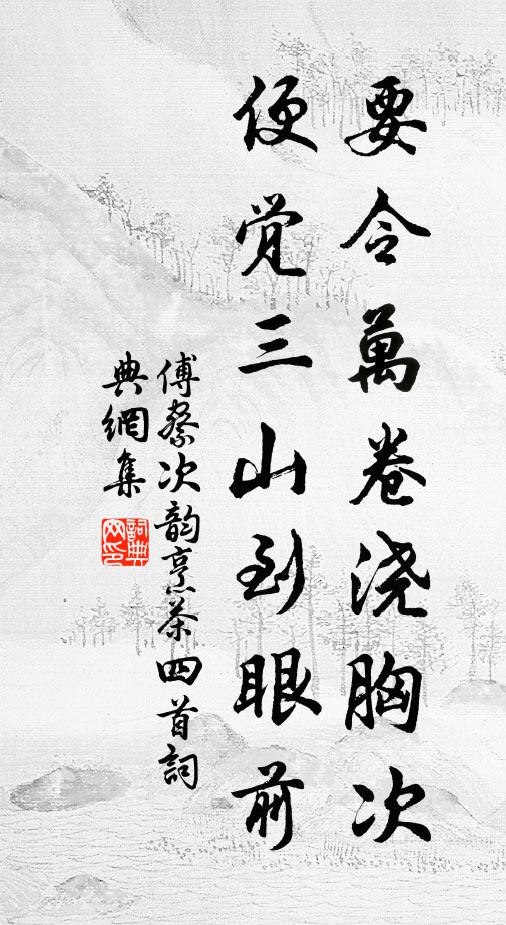 要令萬卷浇胸次
便觉三山到眼前
傅察次韵烹茶四首詞
典網集
詞典
网印